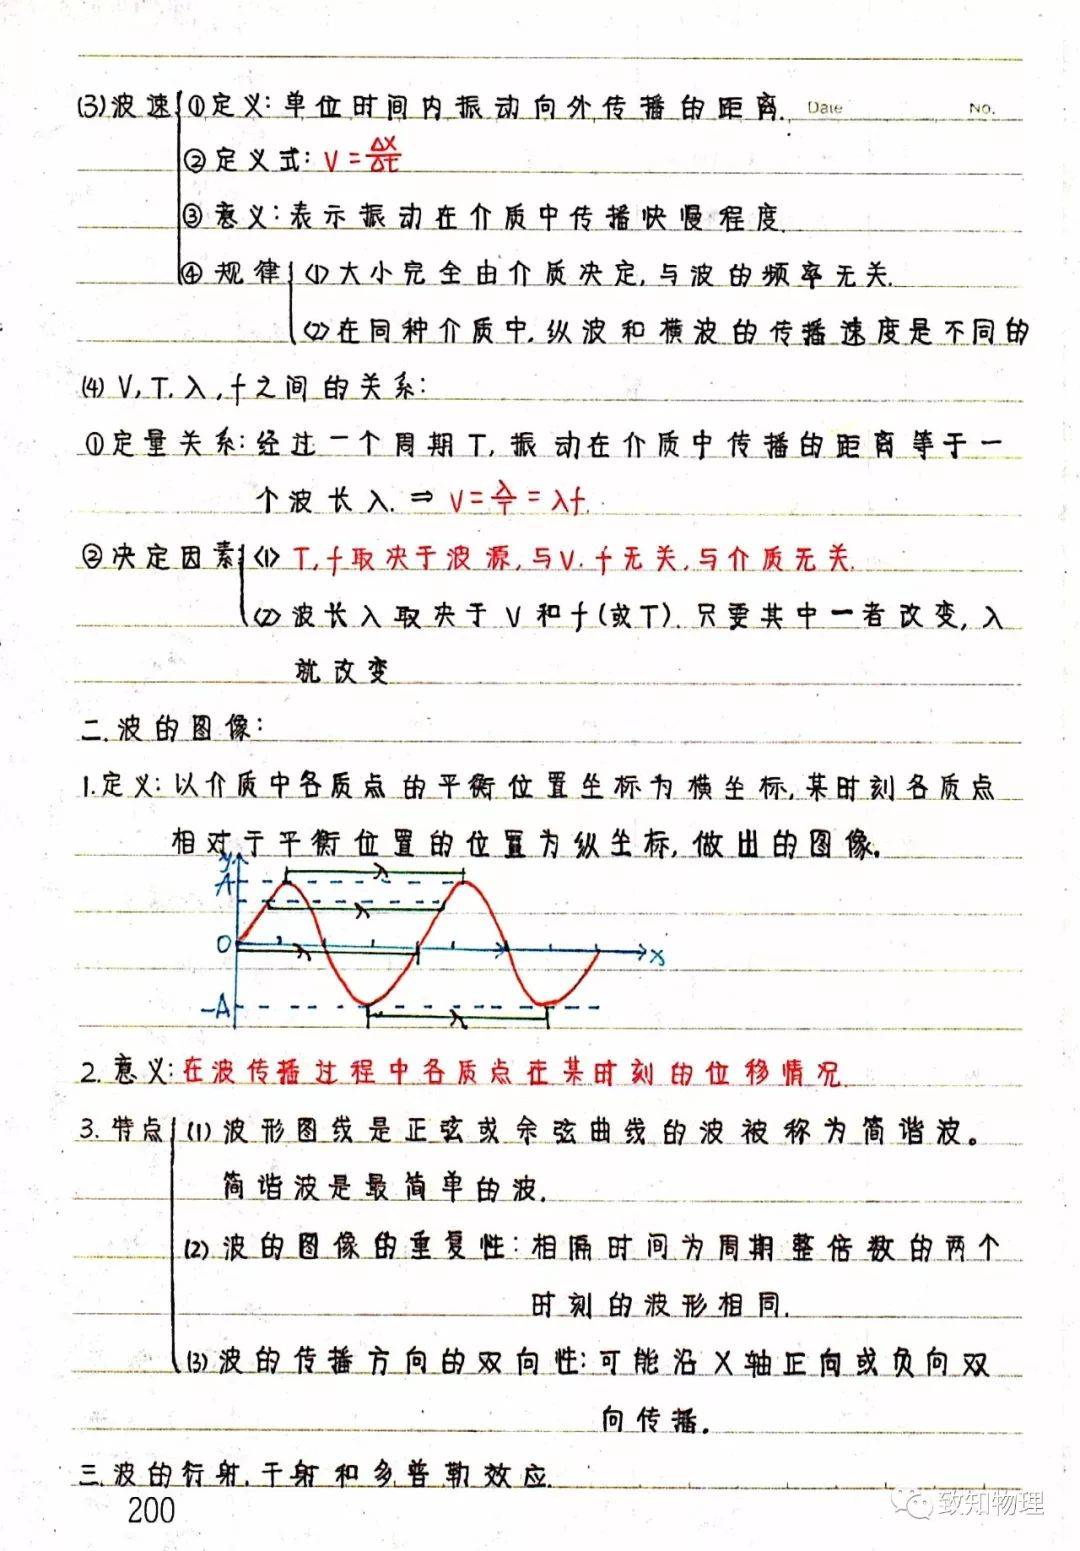 (3)波速 ①定义:单位时间内振动向外传播的距离. Date No.
②定义式: V=Δx/Δt
③意义:表示振动在介质中传播快慢程度.
④规律 (1)大小完全由介质决定,与波的频率无关.
(2)在同种介质中.纵波和横波的传播速度是不同的
(4) V,T,λ,f之间的关系:
①定量关系:经过一个周期T,振动在介质中传播的距离等于一
个波长λ. ⇒ V=λ/T=λf.
②决定因素 (1) T,f取决于波源,与V.f无关,与介质无关.
(2)波长λ取决于V和f(或T).只要其中一者改变,λ
就改变
二.波的图像:
1.定义:以介质中各质点的平衡位置坐标为横坐标,某时刻各质点
相对于平衡位置的位置为纵坐标,做出的图像。
y
A λ
λ
O λ x
-A λ
2.意义:在波传播过程中各质点在某时刻的位移情况.
3.特点 (1)波形图线是正弦或余弦曲线的波被称为简谐波。
简谐波是最简单的波.
(2)波的图像的重复性:相隔时间为周期整倍数的两个
时刻的波形相同.
(3)波的传播方向的双向性:可能沿X轴正向或负向双
向传播。
三.波的衍射.干射和多普勒效应.
200
致知物理